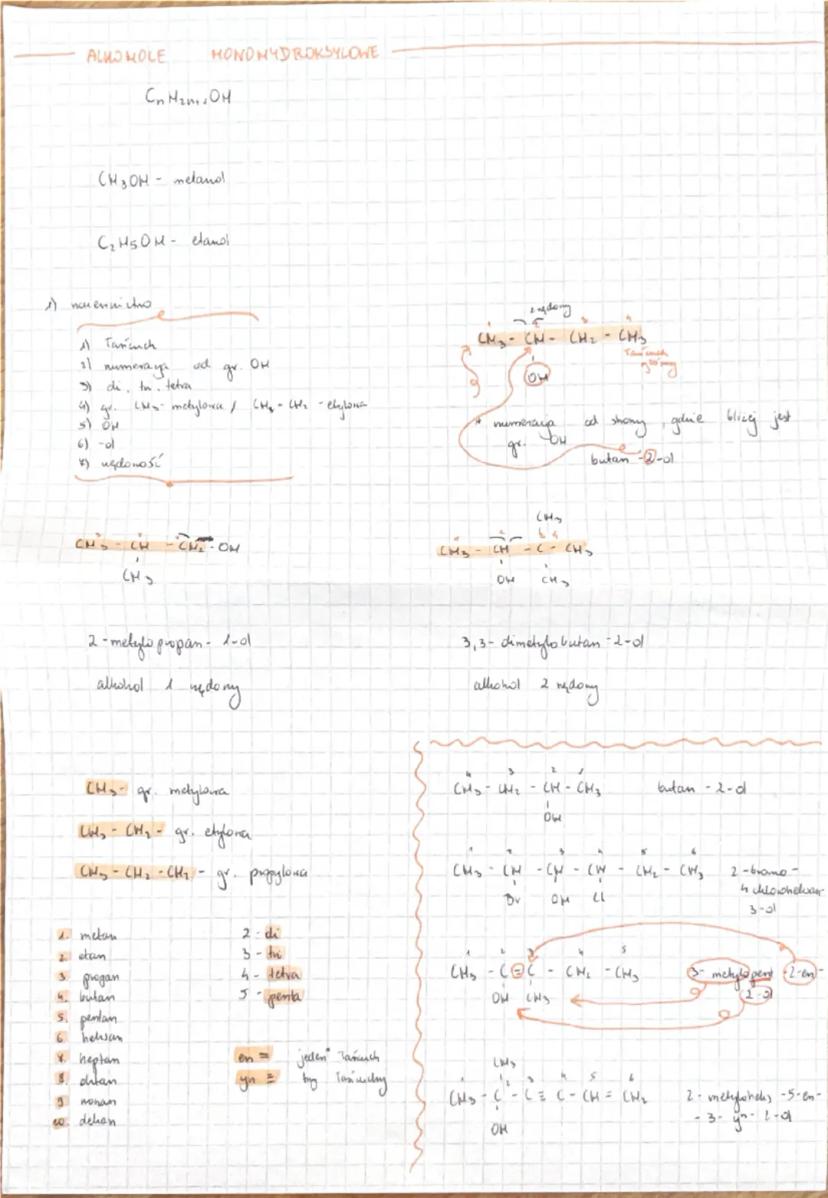 ALKOHOLE MONOHYDROKSYLOWE
CnH2n+1OH
CH3OH - metanol
C2H5OH - etanol
1) nazewnictwo
1) Łańcuch
2) numeracja od gr. OH
3) di, tri, tetra
4) gr. CH3- metylowa / CH3-CH2 - etylowa
5) OH
6) -ol
7) rzędowość
2 rzędowy
1 2 3 4
CH3 - CH - CH2 - CH3
OH
łańcuch
główny
* numeracja od strony, gdzie bliżej jest
gr. OH
butan -2-ol
3 2 1
CH3 - CH - CH2 - OH
CH3
2-metylopropan-1-ol
alkohol 1 rzędowy
CH3
1 2 3 4
CH3 - CH - C - CH3
OH CH3
3,3-dimetylobutan-2-ol
alkohol 2 rzędowy
CH3- gr. metylowa
CH3 - CH2 - gr. etylowa
CH3 - CH2 - CH2 - gr. propylowa
1. metan
2. etan
3. propan
4. butan
5. pentan
6. heksan
7. heptan
8. oktan
9. nonan
10. dekan
2 - di
3 - tri
4 - tetra
5 - penta
en = jeden łańcuch
yn ≡ trzy łańcuchy
4 3 2 1
CH3 - CH2 - CH - CH3 butan -2-ol
OH
1 2 3 4 5 6
CH3 - CH - CH - CH - CH2 - CH3
Br OH Cl
2-bromo-
4 chloroheksan-
3-ol
1 2 3 4 5
CH3 - C = C - CH2 - CH3
OH CH3
3-metylopent -2-en-
2-ol
CH3
1 2 3 4 5 6
CH3 - C - C ≡ C - CH = CH2
OH
2-metyloheks -5-en-
-3-yn-2-ol